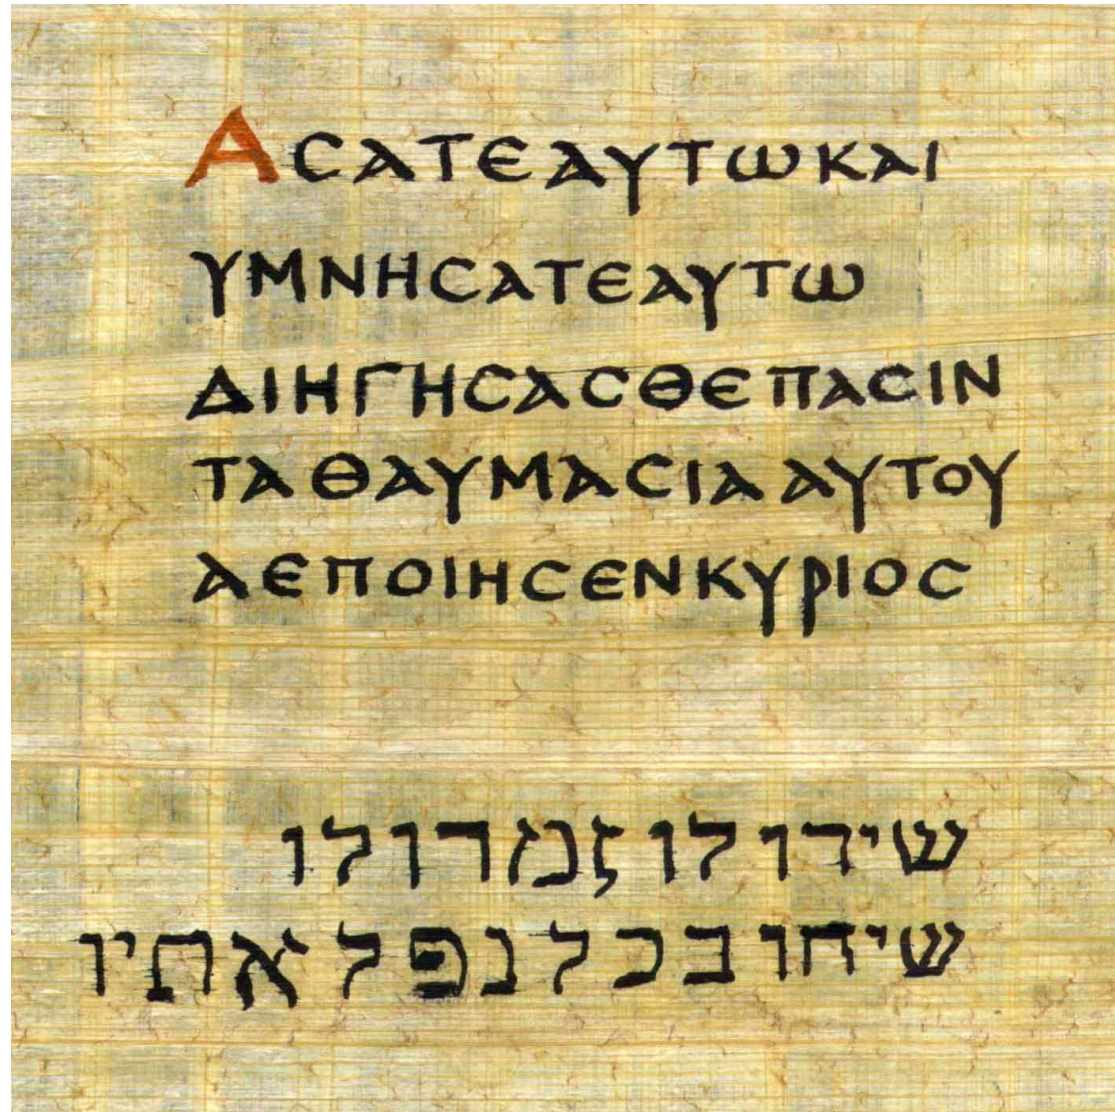 ΑϹΑΤΕΑΥΤΩΚΑΙ
ΥΜΝΗϹΑΤΕΑΥΤΩ
ΔΙΗΓΗϹΑϹΘΕ ΠΑϹΙΝ
ΤΑ ΘΑΥΜΑϹΙΑ ΑΥΤΟΥ
ΑΕΠΟΙΗϹΕΝΚΥΡΙΟϹ
שירו לו זמרו לו
שיחו בכל נפלאתיו